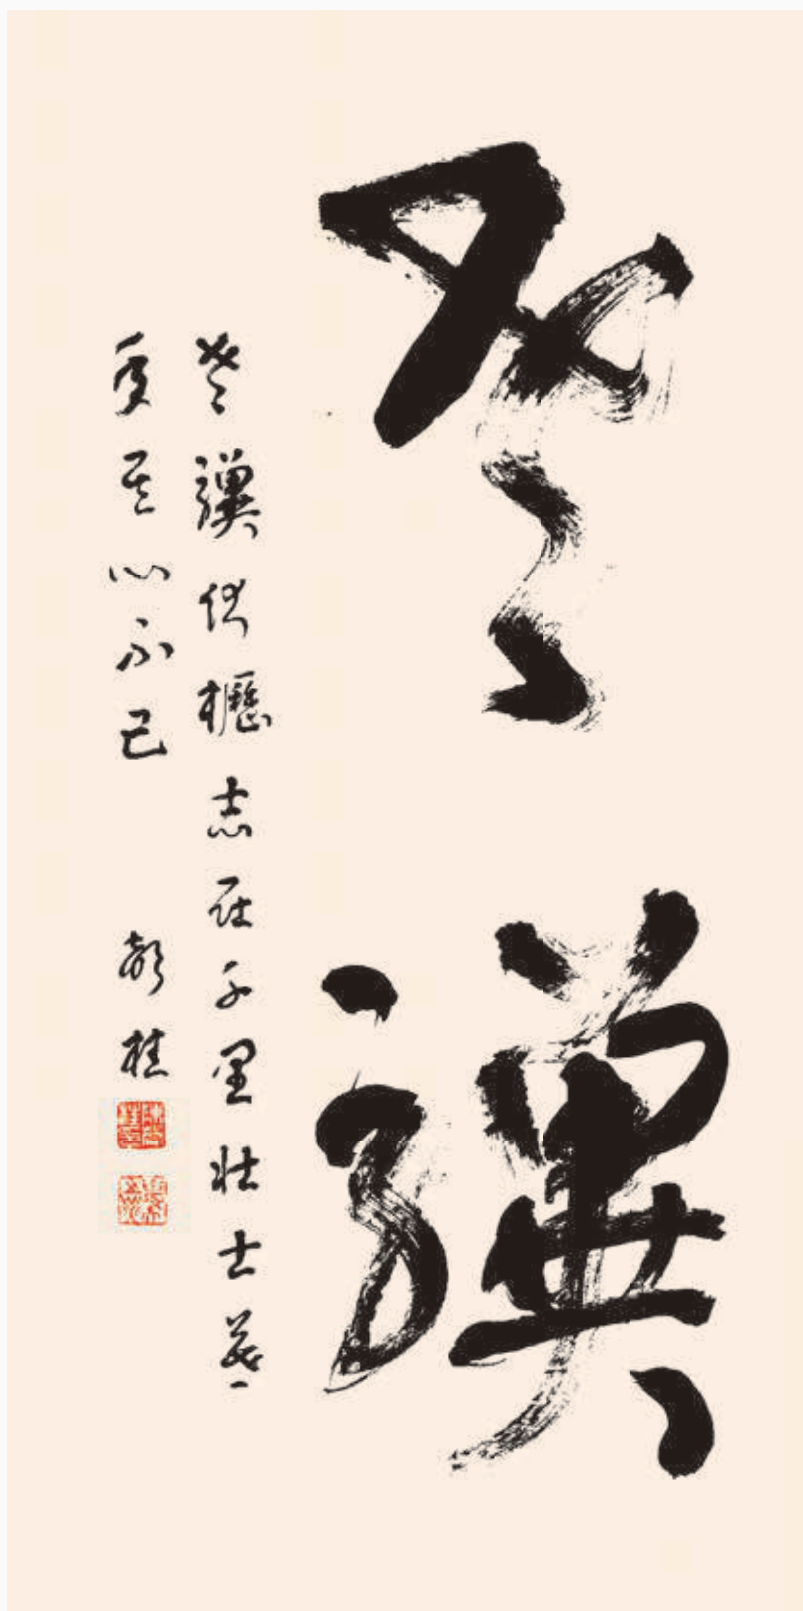 老驥
老驥伏櫪志在千里壯士暮
年其心不已 桂